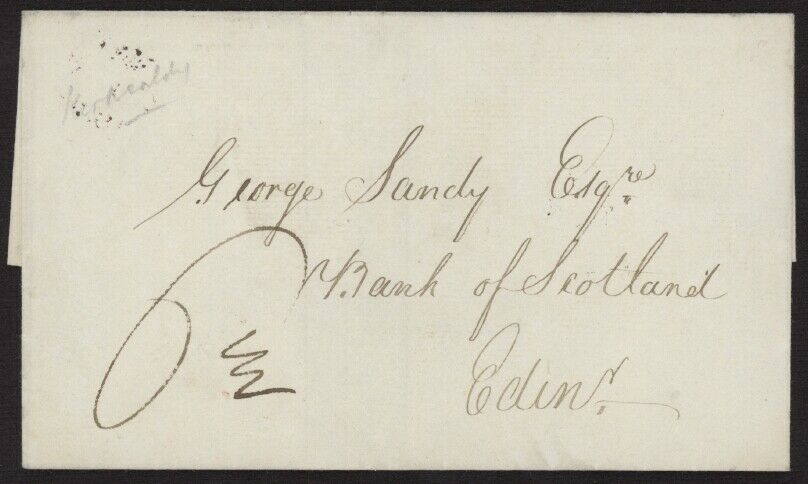 Kirkcaldy
George Sandy Esqre
Bank of Scotland
Edinr
6